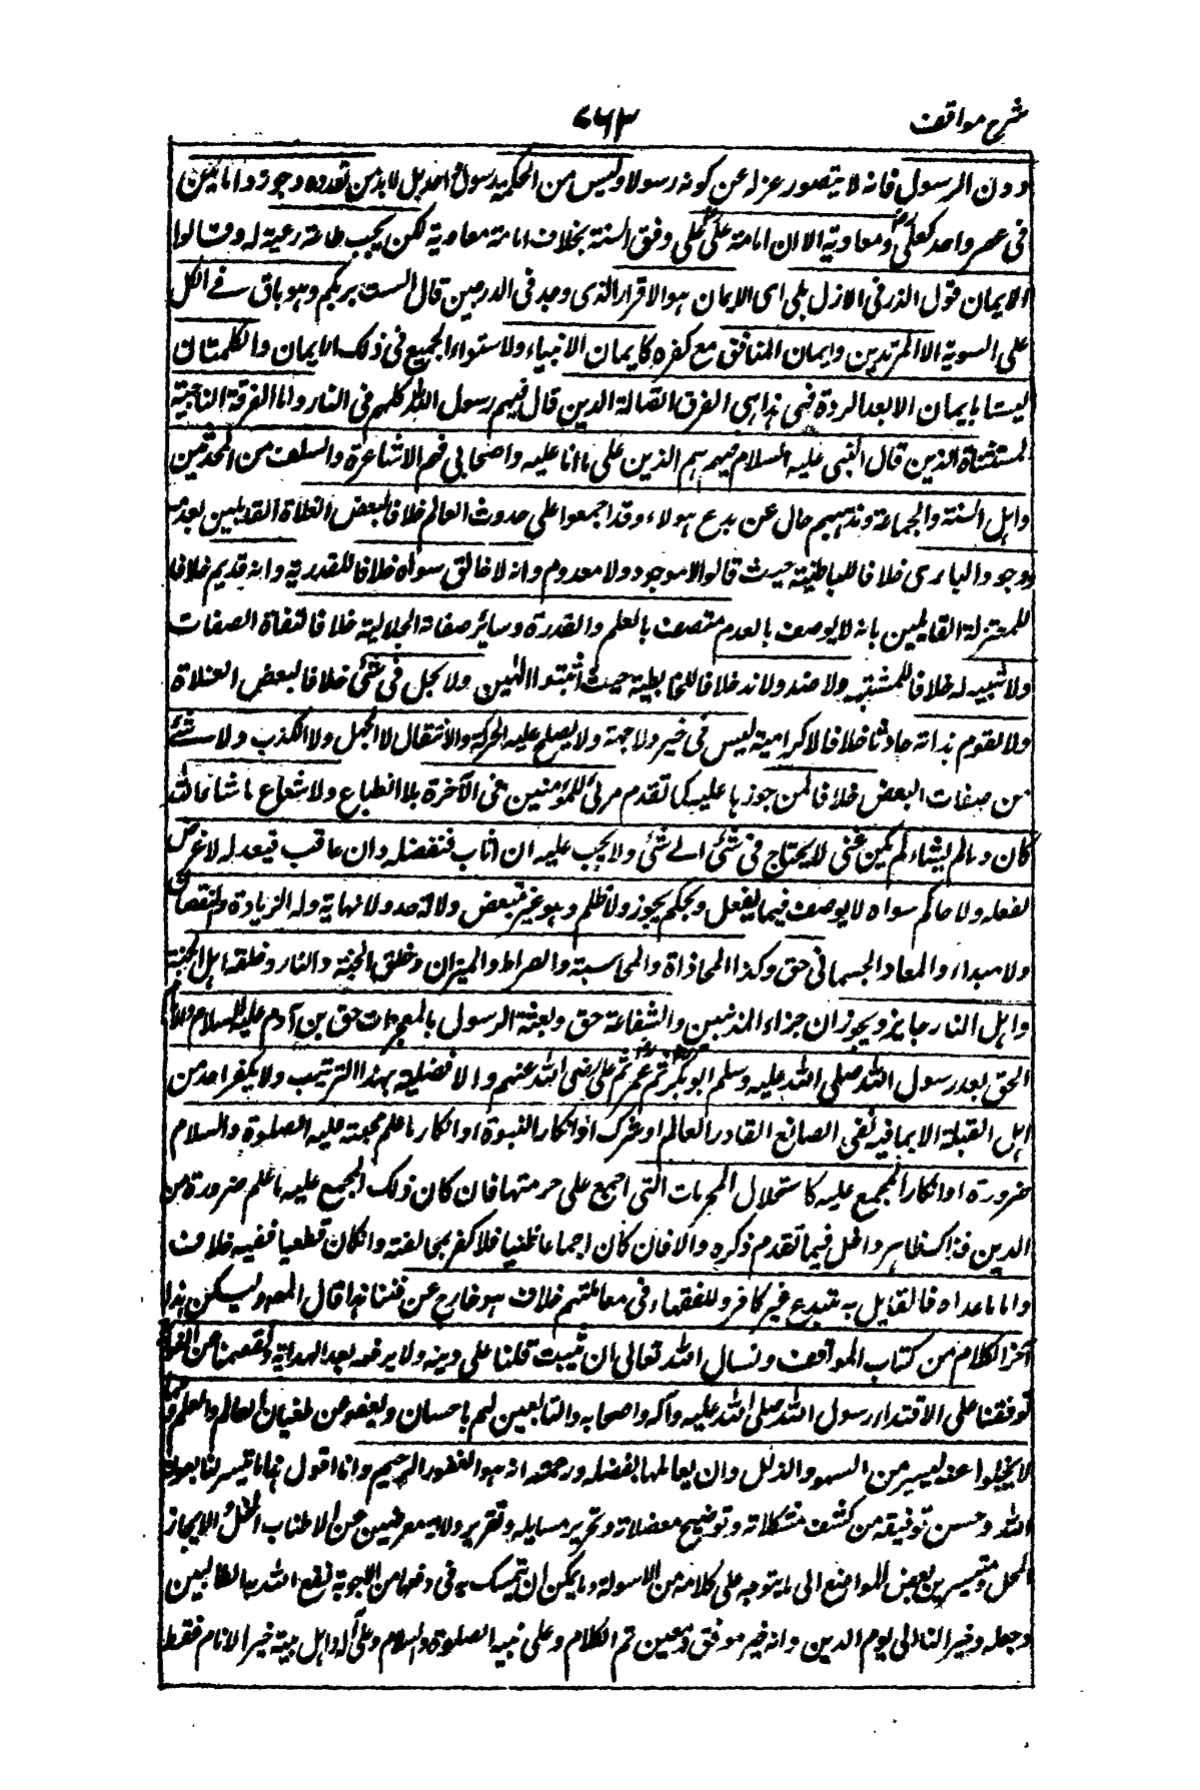 شرح مواقف ٧٦٣
دون الرسول فانه لا يتصور عزله عن كونه رسولا وليس من الحكمة رسول احد بل لا بد من تعدده وجوز وا امامين
فى عصر واحد كعلى ومعاوية الا ان امامة على على وفق السنة بخلاف امامة معاوية لكن يجب طاعة رعية له وقالوا
الايمان قول الذر فى الازل بلى اى الايمان هو الاقرار الذى وجد فى الذر حين قال الست بربكم وهو باق فى الكل
على السوية الا المرتدين وايمان المنافق مع كفره كايمان الانبياء ولاستواء الجميع فى ذلك الايمان والكلمتان
ليستا بايمان الا بعد الردة فهى هذا هى الفرق الضالة الذين قال فيهم رسول الله كلهم فى النار واما الفرقة الناجية
المستثناة الذين قال النبى عليه السلام فيهم هم الذين على ما انا عليه واصحابى فهم الاشاعرة والسلف من المحدثين
واهل السنة والجماعة ومذهبهم خال عن بدع هولاء وقد اجمعوا على حدوث العالم خلافا لبعض الغلاة القايلين بقدمه
ووجود البارى خلافا للباطنية حيث قالوا لا موجود ولا معدوم وانه لا خالق سواه خلافا للقدرية وانه قديم خلافا
للمعتزلة القايلين بانه لا يوصف بالعدم متصف بالعلم والقدرة وساير صفاته الجلالية خلافا لنفاة الصفات
ولا شبيه له خلافا للمشبهة ولا ضد ولا ند خلافا للحابطية حيث اثبتوا الٰهين ولا يحل فى شئ خلافا لبعض الغلاة
ولا يقوم بذاته حادث خلافا لكرامية ليس فى حيز ولا جهة ولا يصلح عليه الحركة والانتقال لا الجهل ولا الكذب ولا شئ
من صفات النقص خلافا لمن جوزها عليه كما تقدم مرئى للمؤمنين فى الآخرة بلا انطباع ولا شعاع ما شاء الله
كان وما لم يشاء لم يكن غنى لا يحتاج فى شئ الى شئ ولا يجب عليه ان اثاب فبفضله وان عاقب فبعدله لا غرض
لفعله ولا حاكم سواه لا يوصف فيما يفعل ويحكم بجور ولا ظلم وهو غير متبعض ولا له حد ولا نهاية وله الزيادة والنقصان
ولا مبداء والمعاد الجسمانى حق وكذا المجاذاة والمحاسبة والصراط والميزان وخلق الجنة والنار وخلقه اهل الجنة
واهل النار جايز ويجوز ان جزاء المذنبين والشفاعة حق وبعثة الرسول بالمعجزات حق من آدم عليه السلام والامام
الحق بعد رسول الله صلى الله عليه وسلم ابو بكر ثم عمر ثم على رضى الله عنهم والافضلية بهذا الترتيب ولا يكفر احد من
اهل القبلة الا بما فيه نفى الصانع القادر العالم او شرك او انكار النبوة او انكار ما علم مجيئه عليه الصلوة والسلام
ضرورة او انكار المجمع عليه كاستحلال المحرمات التى اجمع على حرمتها فان كان ذلك المجمع عليه ما علم ضرورة من
الدين فذاك ظاهر داخل فيما تقدم ذكره والا فان كان اجماعا ظنيا فلا كفر بمخالفته وان كان قطعيا ففيه خلاف
واما ما عداه فالقايل به مبتدع غير كافر وللفقهاء فى معاملتهم خلاف هو خارج عن فننا هذا قال المصـ وليكن هذا
آخر الكلام من كتاب المواقف ونسال الله تعالى ان يثبت قلبنا على دينه ولا يزيغه بعد الهداية ويعصمنا عن الغواية
توفقنا على الاقتداء رسول الله صلى الله عليه وآله واصحابه والتابعين لهم باحسان ويعفو عن طغيان العالم والقلم وما
لا يخلوا عنه البشر من السهو والذلل وان يعاملها بفضله ورحمته انه هو الغفور الرحيم وانا اقول هذا ما تيسر لنا بعون
الله وحسن توفيقه من كشف مشكلاته وتوضيح معضلاته وتحرير مسايله وتقرير دلايله معرضين عن الاطناب الممل والايجاز
المخل متيسرين بعض المواضع الى ما يتوجه على كلامه من الاسولة وما يمكن ان يتمسك به فى دفعها من الاجوبة نفع الله به الطالبين
وجعله ذخيرا لنا الى يوم الدين وانه خير موفق ومعين تم الكلام وعلى نبيه الصلوة والسلام وعلى آله واهل بيته خير الانام فقط